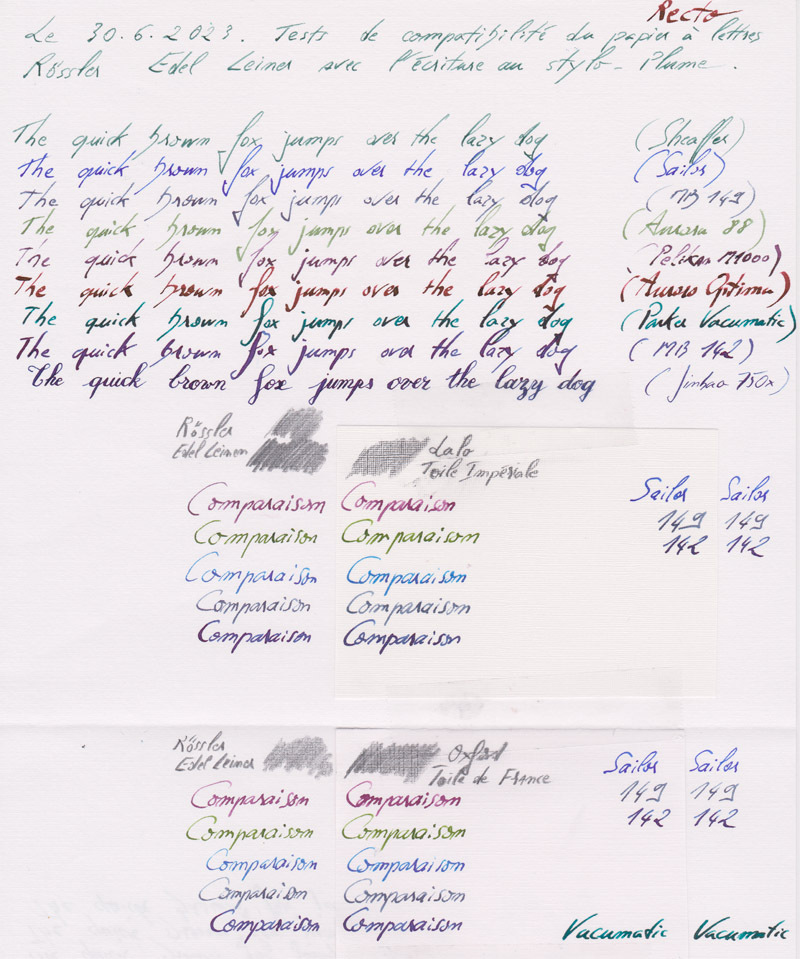 Recto
Le 30.6.2023. Tests de compatibilité du papier à lettres
Rössler Edel Leinen avec l'écriture au stylo-Plume.
The quick brown fox jumps over the lazy dog (Sheaffer)
The quick brown fox jumps over the lazy dog (Sailor)
The quick brown fox jumps over the lazy dog (MB 149)
The quick brown fox jumps over the lazy dog (Aurora 88)
The quick brown fox jumps over the lazy dog (Pelikan M1000)
The quick brown fox jumps over the lazy dog (Aurora Optima)
The quick brown fox jumps over the lazy dog (Parker Vacumatic)
The quick brown fox jumps over the lazy dog (MB 142)
The quick brown fox jumps over the lazy dog (Jinhao 750x)
Rössler Lalo
Edel Leinen Toile Impériale
Comparaison Comparaison Sailor Sailor
Comparaison Comparaison 149 149
142 142
Comparaison Comparaison
Comparaison Comparaison
Comparaison Comparaison
Rössler Oxford
Edel Leinen Toile de France Sailor Sailor
Comparaison Comparaison 149 149
Comparaison Comparaison 142 142
Comparaison Comparaison
Comparaison Comparaison
Comparaison Comparaison Vacumatic Vacumatic